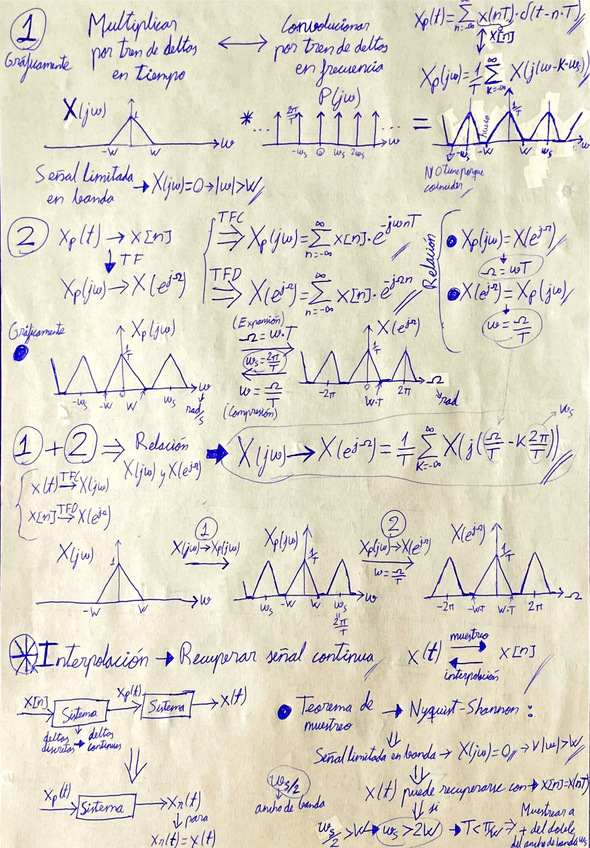 1 Multiplicar por tren de deltas en tiempo ↔ Convolucionar por tren de deltas en frecuencia
Gráficamente
Xp(t) = Σ_{n=-∞}^{∞} x(nT)·δ(t-n·T)
x[n]
Xp(jω) = 1/T Σ_{K=-∞}^{∞} X(j(ω-K·ωs))
X(jω)
1
-W W ω
*
P(jω)
2π/T
... -ωs 0 ωs 2ωs ... ω
=
hueco
1/T
-ωs -W W ωs ω
NO tiene porque coincidir
Señal limitada en banda → X(jω)=0 → |ω|>W
2 Xp(t) → x[n]
↓ TF
Xp(jω) → X(e^{jΩ})
TFC ⇒ Xp(jω) = Σ_{n=-∞}^{∞} x[n]·e^{-jωnT}
TFD ⇒ X(e^{jΩ}) = Σ_{n=-∞}^{∞} x[n]·e^{-jΩn}
Relación
Xp(jω) = X(e^{jΩ})
Ω = ωT
X(e^{jΩ}) = Xp(jω)
ω = Ω/T
Gráficamente
Xp(jω)
1/T
-ωs -W W ωs ω
rad/s
(Expansión)
Ω = ω·T
ωs = 2π/T
ω = Ω/T
(Compresión)
X(e^{jΩ})
1/T
-2π 0 W·T 2π Ω
rad
1 + 2 ⇒ Relación X(jω) y X(e^{jΩ}) → X(jω) → X(e^{jΩ}) = 1/T Σ_{K=-∞}^{∞} X(j(Ω/T - K 2π/T))
ωs
x(t) TFC→ X(jω)
x[n] TFD→ X(e^{jΩ})
X(jω)
-W W ω
1
X(jω)→Xp(jω)
Xp(jω)
1/T
ωs -W W ωs ω
2π/T
2
Xp(jω)→X(e^{jΩ})
ω = Ω/T
X(e^{jΩ})
1/T
-2π -WT W·T 2π Ω
Interpolación → Recuperar señal continua
x(t) muestreo → x[n]
← interpolación
x[n] → Sistema → Xp(t) → Sistema → x(t)
deltas discretas → deltas continuas
Teorema de muestreo → Nyquist-Shannon:
Señal limitada en banda → X(jω)=0, → ∀|ω|>W
Xp(t) → Sistema → Xr(t)
para
Xr(t) = x(t)
ωs/2
ancho de banda
x(t) puede recuperarse con → x[n]=x(nT)
si
ωs/2 > W → ωs > 2W → T < π/W ⇒ Muestrear a + del doble del ancho de banda ωs